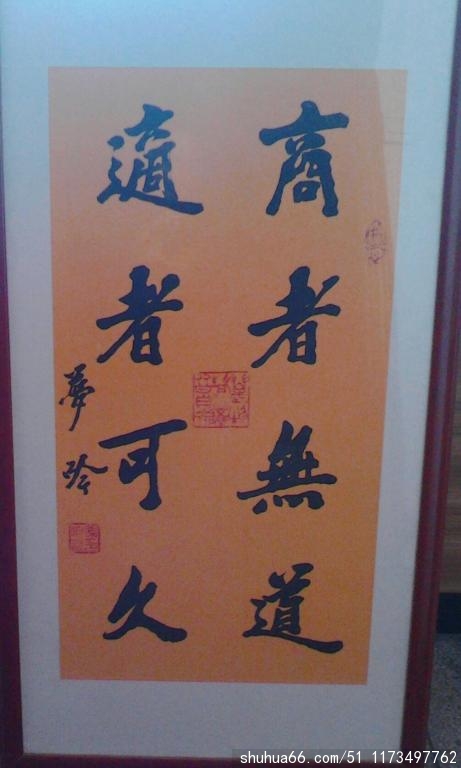 商者無道
適者可久
夢
shuhua66.com/51 1173497762